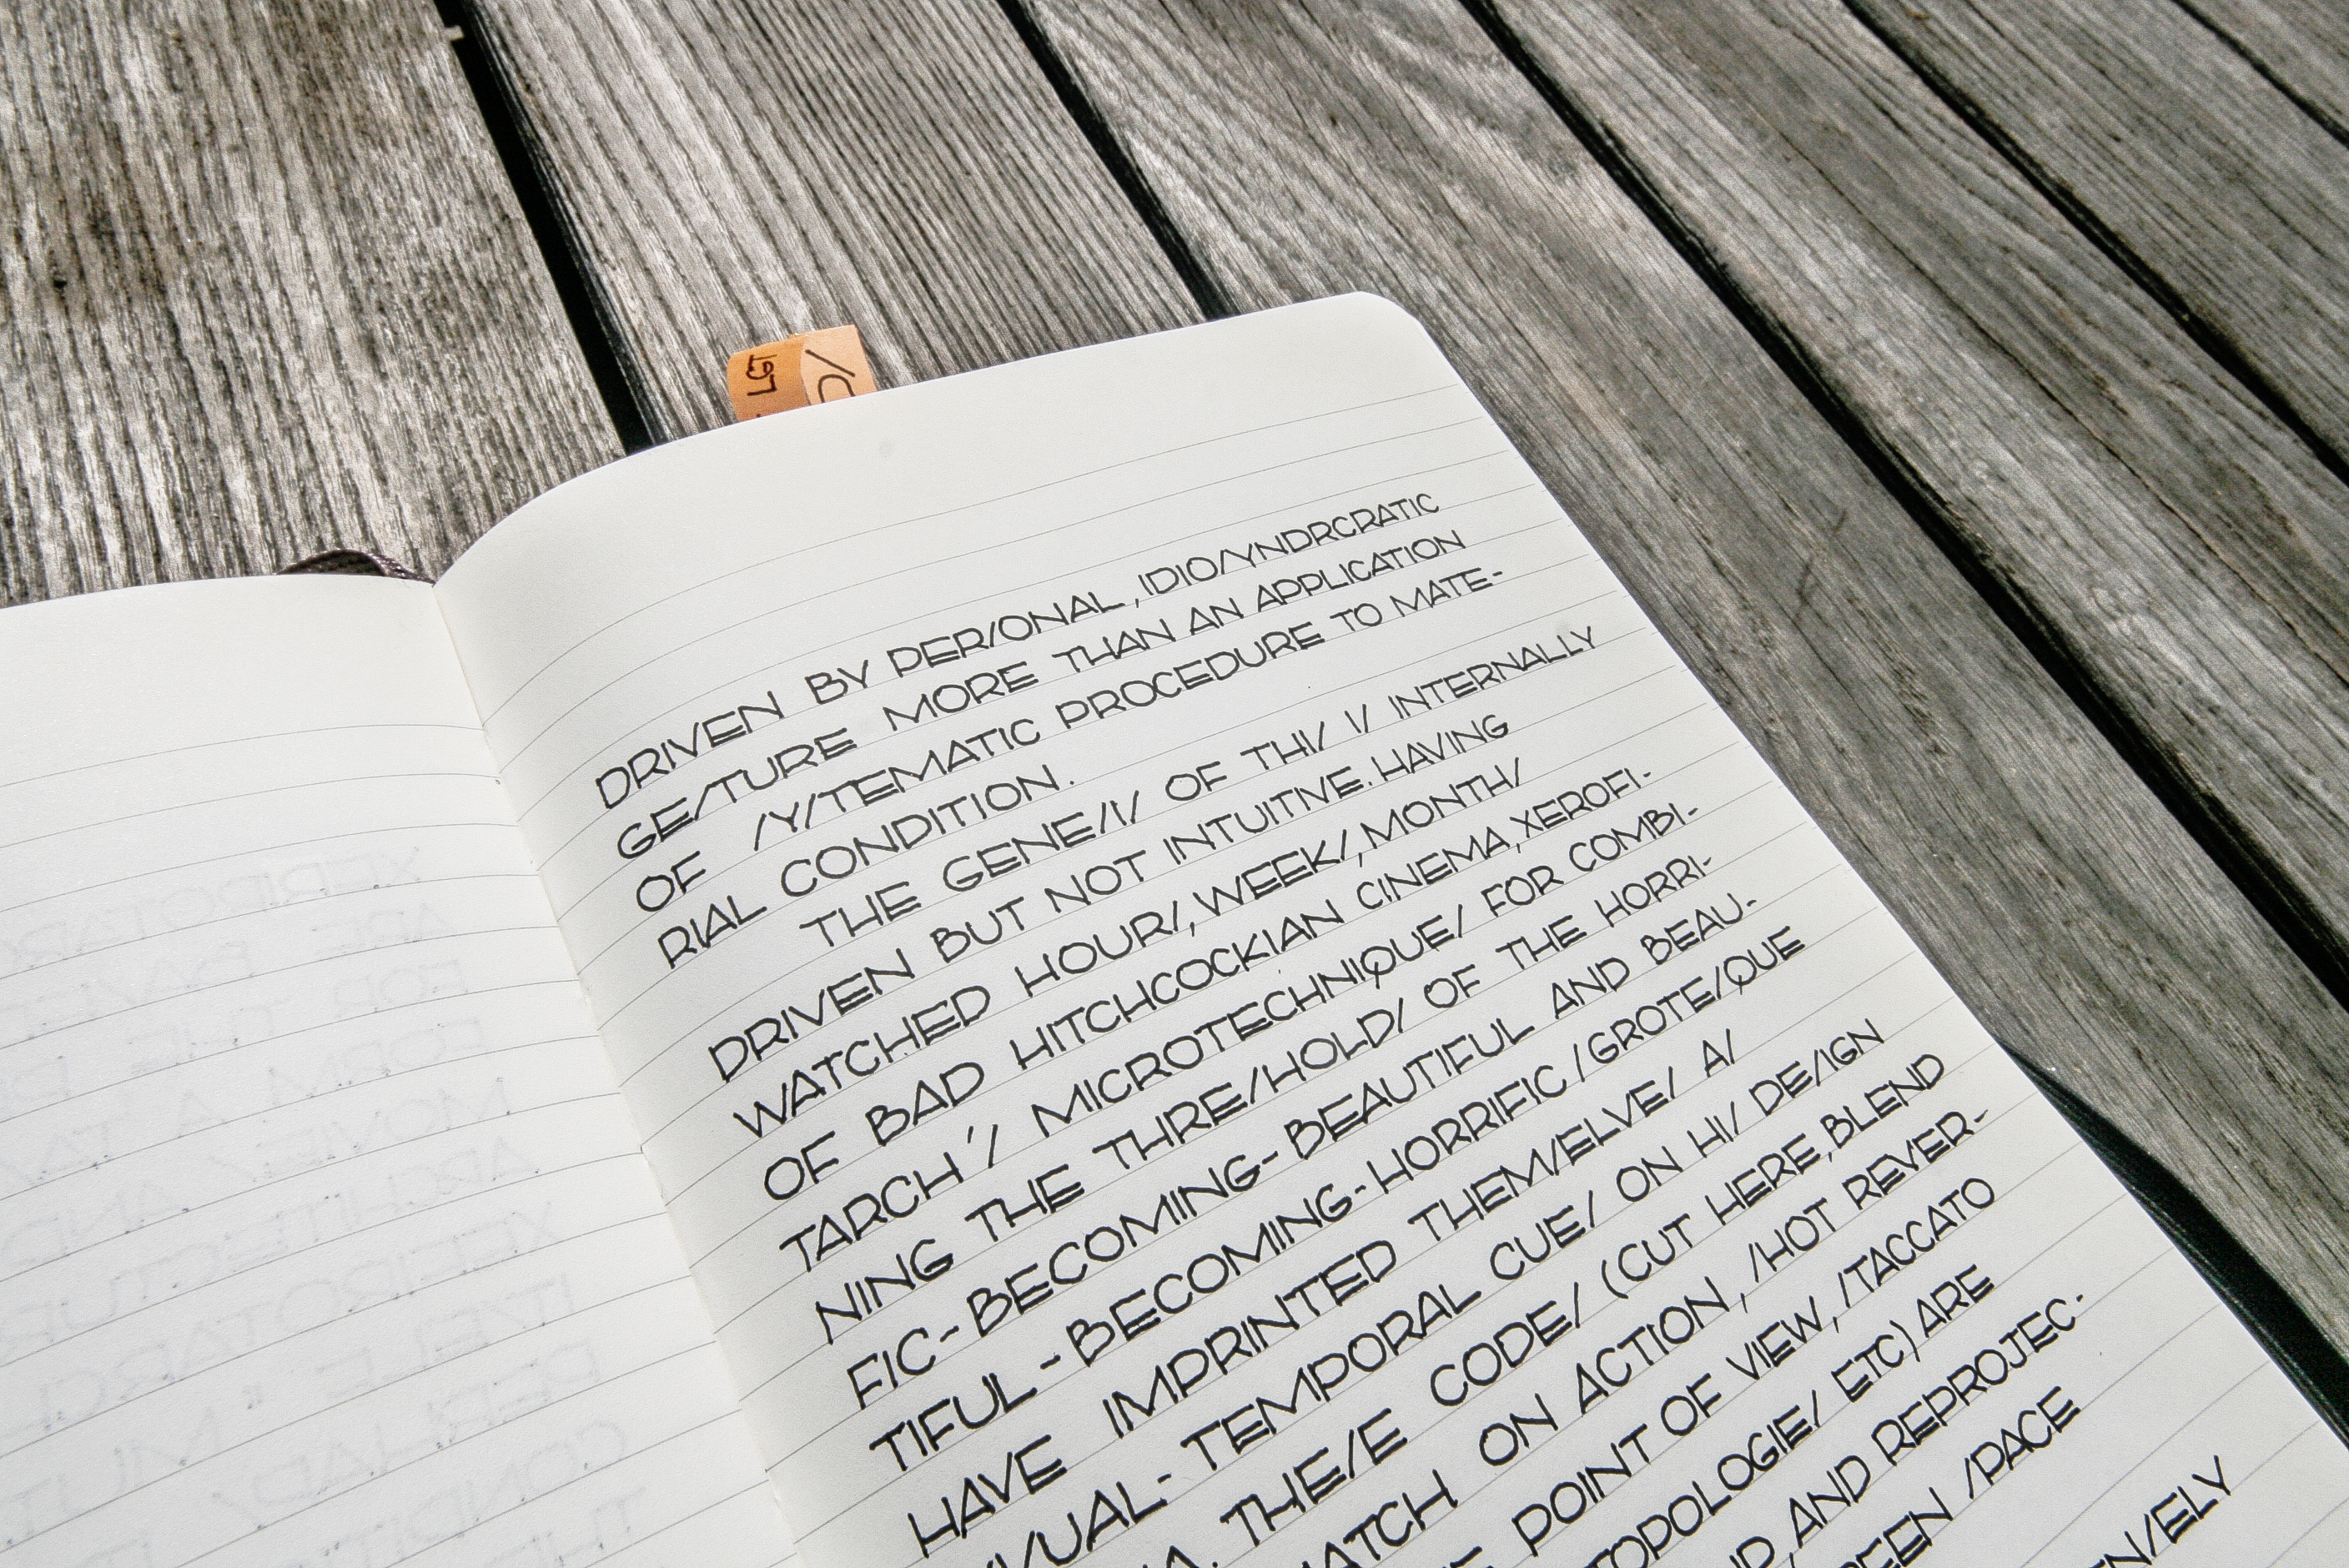 LGT
/C
DRIVEN BY PER/ONAL, IDIO/YNDRCRATIC
GE/TURE MORE THAN AN APPLICATION
OF /Y/TEMATIC PROCEDURE TO MATE-
RIAL CONDITION.
THE GENE/I/ OF THI/ I/ INTERNALLY
DRIVEN BUT NOT INTUITIVE. HAVING
WATCHED HOUR/, WEEK/, MONTH/
OF BAD HITCHCOCKIAN CINEMA, XEROFI-
TARCH'/ MICROTECHNIQUE/ FOR COMBI-
NING THE THRE/HOLD/ OF THE HORRI-
FIC-BECOMING-BEAUTIFUL AND BEAU-
TIFUL-BECOMING-HORRIFIC/GROTE/QUE
HAVE IMPRINTED THEM/ELVE/ A/
VI/UAL-TEMPORAL CUE/ ON HI/ DE/IGN
THE/E CODE/ (CUT HERE, BLEND
MATCH ON ACTION, /HOT REVER-
POINT OF VIEW, /TACCATO
TOPOLOGIE/ ETC) ARE
AND REPROJEC-
/PACE